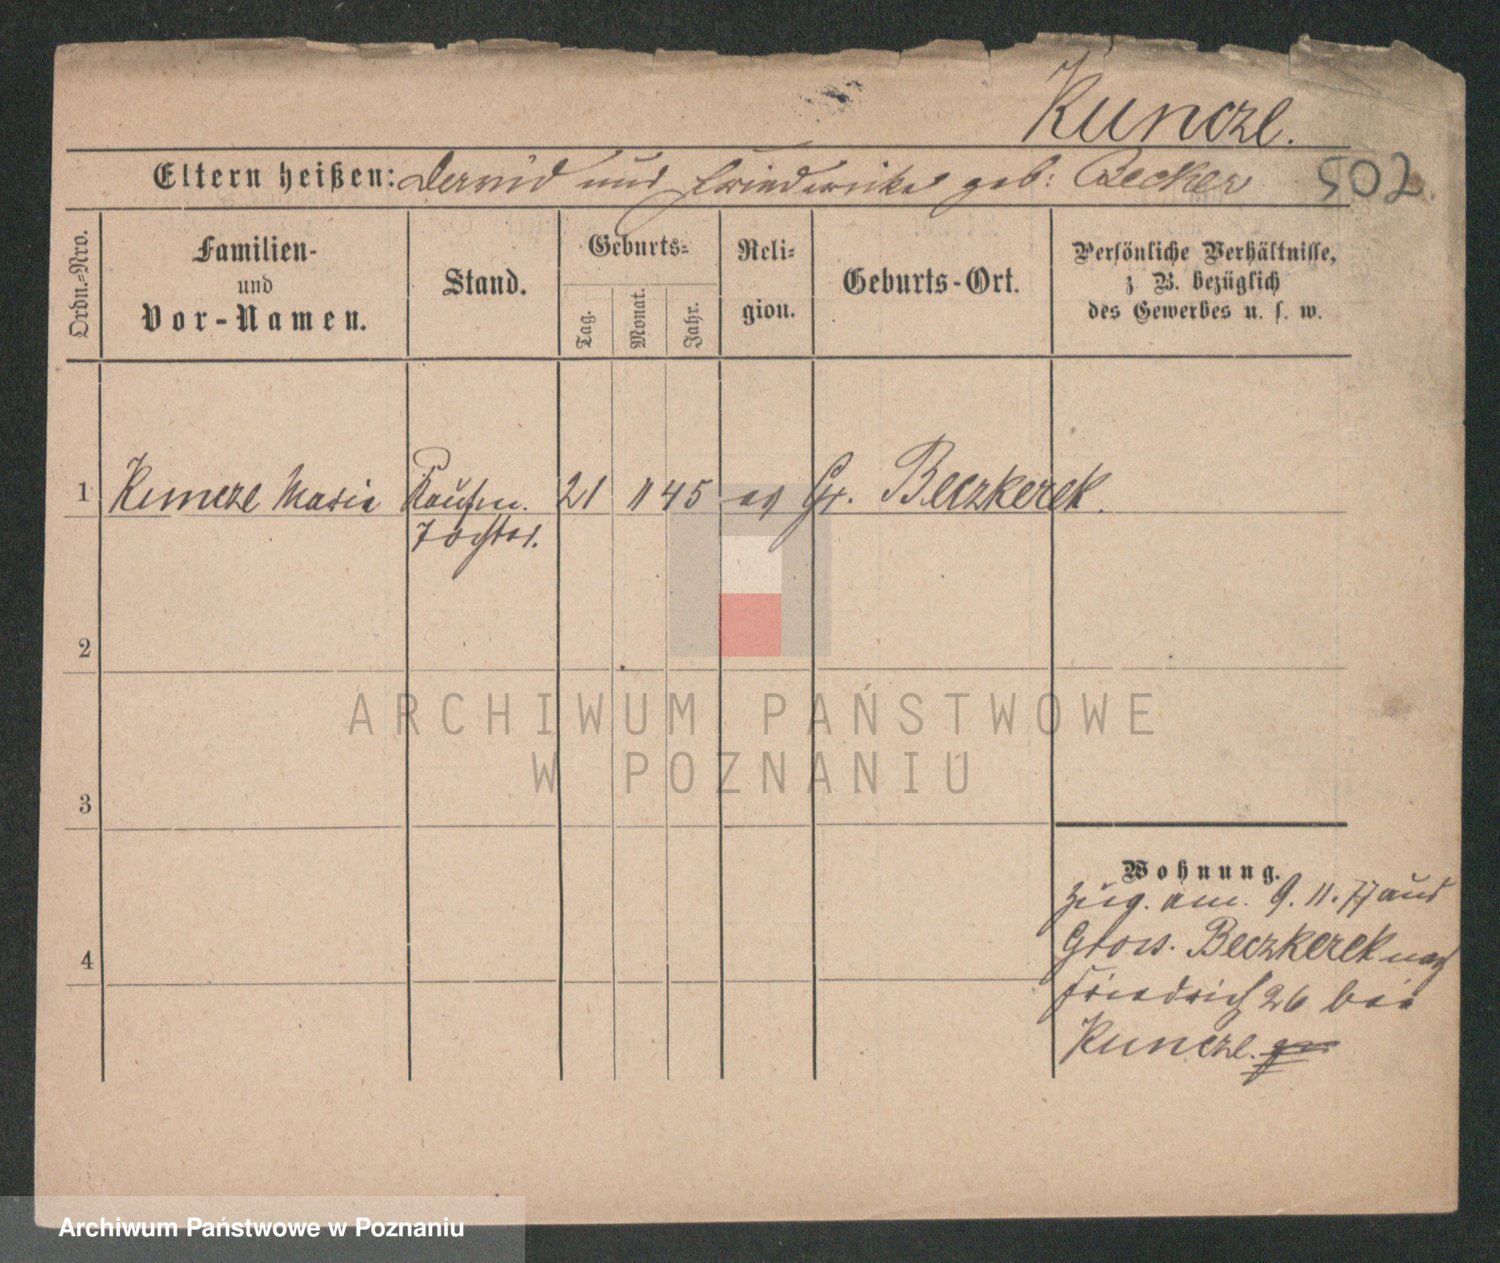 Kuncze.
Eltern heißen: David und Friederike geb: Becker
502
Ordn.=Nro.
Familien-
und
Vor-Namen.
Stand.
Geburts=
Tag.
Monat.
Jahr.
Reli=
gion.
Geburts-Ort.
Persönliche Verhältnisse,
z. B. bezüglich
des Gewerbes u. s. w.
1 Kuncze Maria Kaufm. 21 11 45 ev Gr. Beczkerek.
Tochter.
2
3
4
Wohnung.
Zug. am. 9. 11. 77 aus
Gross. Beczkerek nach
Friedrich 26 bei
Kuncze.
ARCHIWUM PAŃSTWOWE
W POZNANIU
Archiwum Państwowe w Poznaniu